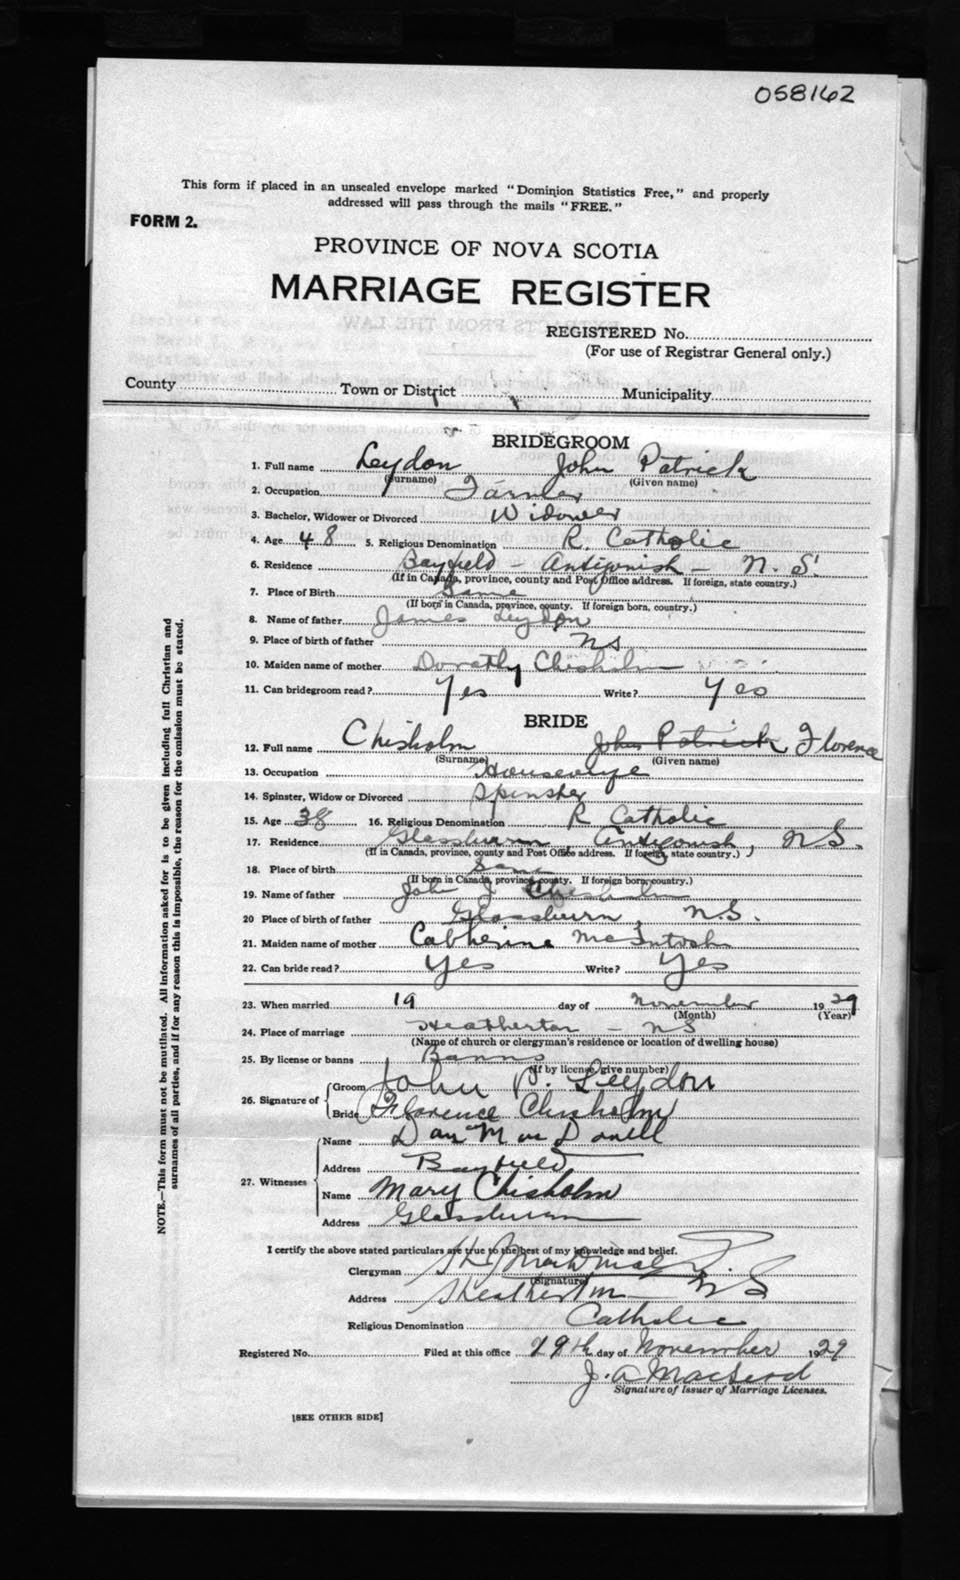 058162
This form if placed in an unsealed envelope marked "Dominion Statistics Free," and properly
addressed will pass through the mails "FREE."
FORM 2.
PROVINCE OF NOVA SCOTIA
MARRIAGE REGISTER
REGISTERED No.
(For use of Registrar General only.)
County Town or District Municipality
BRIDEGROOM
1. Full name Leydon John Patrick
(Surname) (Given name)
2. Occupation Farmer
3. Bachelor, Widower or Divorced Widower
4. Age 48 5. Religious Denomination R. Catholic
6. Residence Bayfield - Antigonish - N. S.
(If in Canada, province, county and Post Office address. If foreign, state country.)
7. Place of Birth Same
(If born in Canada, province, county. If foreign born, country.)
8. Name of father James Leydon
9. Place of birth of father NS
10. Maiden name of mother Dorathy Chisholm
11. Can bridegroom read? Yes Write? Yes
BRIDE
12. Full name Chisholm John Patrick Florence
(Surname) (Given name)
13. Occupation Housewife
14. Spinster, Widow or Divorced Spinster
15. Age 38 16. Religious Denomination R Catholic
17. Residence Glassburn Antigonish, N.S.
(If in Canada, province, county and Post Office address. If foreign, state country.)
18. Place of birth Same
(If born in Canada, province, county. If foreign born, country.)
19. Name of father John J Chisholm
20 Place of birth of father Glassburn, N.S.
21. Maiden name of mother Catherine McIntosh
22. Can bride read? Yes Write? Yes
23. When married 19 day of November 1929
(Month) (Year)
24. Place of marriage Heatherton - NS
(Name of church or clergyman's residence or location of dwelling house)
25. By license or banns Banns
(If by license, give number)
26. Signature of Groom John P. Leydon
Bride Florence Chisholm
27. Witnesses Name Dan MacDonell
Address Bayfield
Name Mary Chisholm
Address Glassburn
I certify the above stated particulars are true to the best of my knowledge and belief.
Clergyman
(Signature)
Address Heatherton NS
Religious Denomination Catholic
Registered No. Filed at this office 29th day of November 1929
J. A MacLeod
Signature of Issuer of Marriage Licenses.
[SEE OTHER SIDE]
NOTE.—This form must not be mutilated. All information asked for is to be given including full Christian and
surnames of all parties, and if for any reason this is impossible, the reason for the omission must be stated.